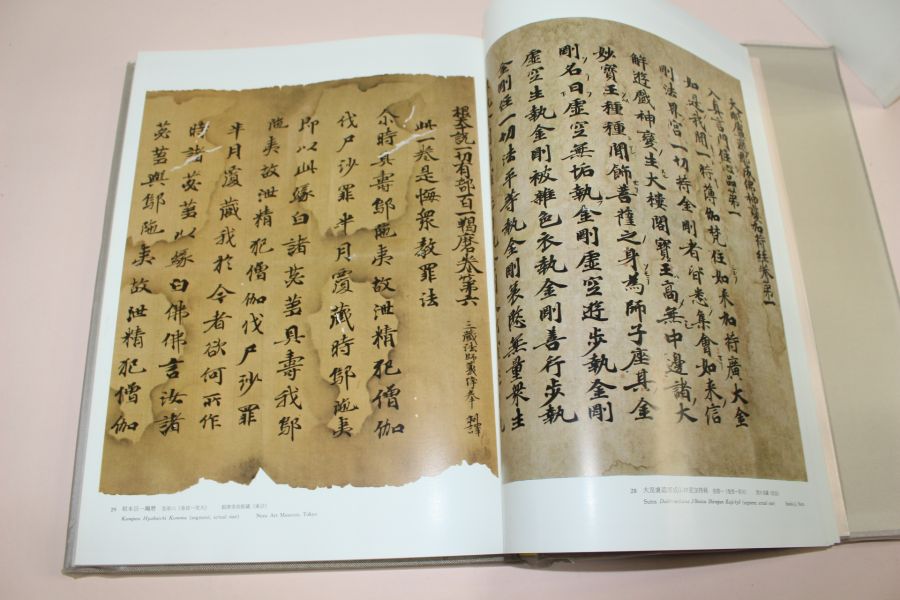 大毗盧遮那成佛神變加持經卷第一
入真言門住心品第一
如是我聞一時薄伽梵住如來加持廣大金
剛法界宮一切持金剛者皆悉集會如來信
解遊戲神變生大樓閣寶王高無中邊諸大
妙寶王種種間飾菩薩之身為師子座其金
剛名曰虛空無垢執金剛虛空遊步執金剛
虛空生執金剛被雜色衣執金剛善行步執
金剛住一切法平等執金剛哀愍無量衆生
28
Sutra
(segment, actual size)
根本說一切有部百一羯磨卷第六
三藏法師義淨奉 制譯
此一卷是悔衆教罪法
尒時具壽鄔陁夷故泄精犯僧伽
伐尸沙罪半月覆藏時鄔陁夷
即以此緣白諸苾芻具壽我鄔
陁夷故泄精犯僧伽伐尸沙罪
半月覆藏我於今者欲何所作
時諸苾芻以緣白佛佛言汝諸
苾芻與鄔陁夷故泄精犯僧伽
29 根本百一羯磨
Kompon Hyakuichi Konma (segment, actual size) Nezu Art Museum, Tokyo